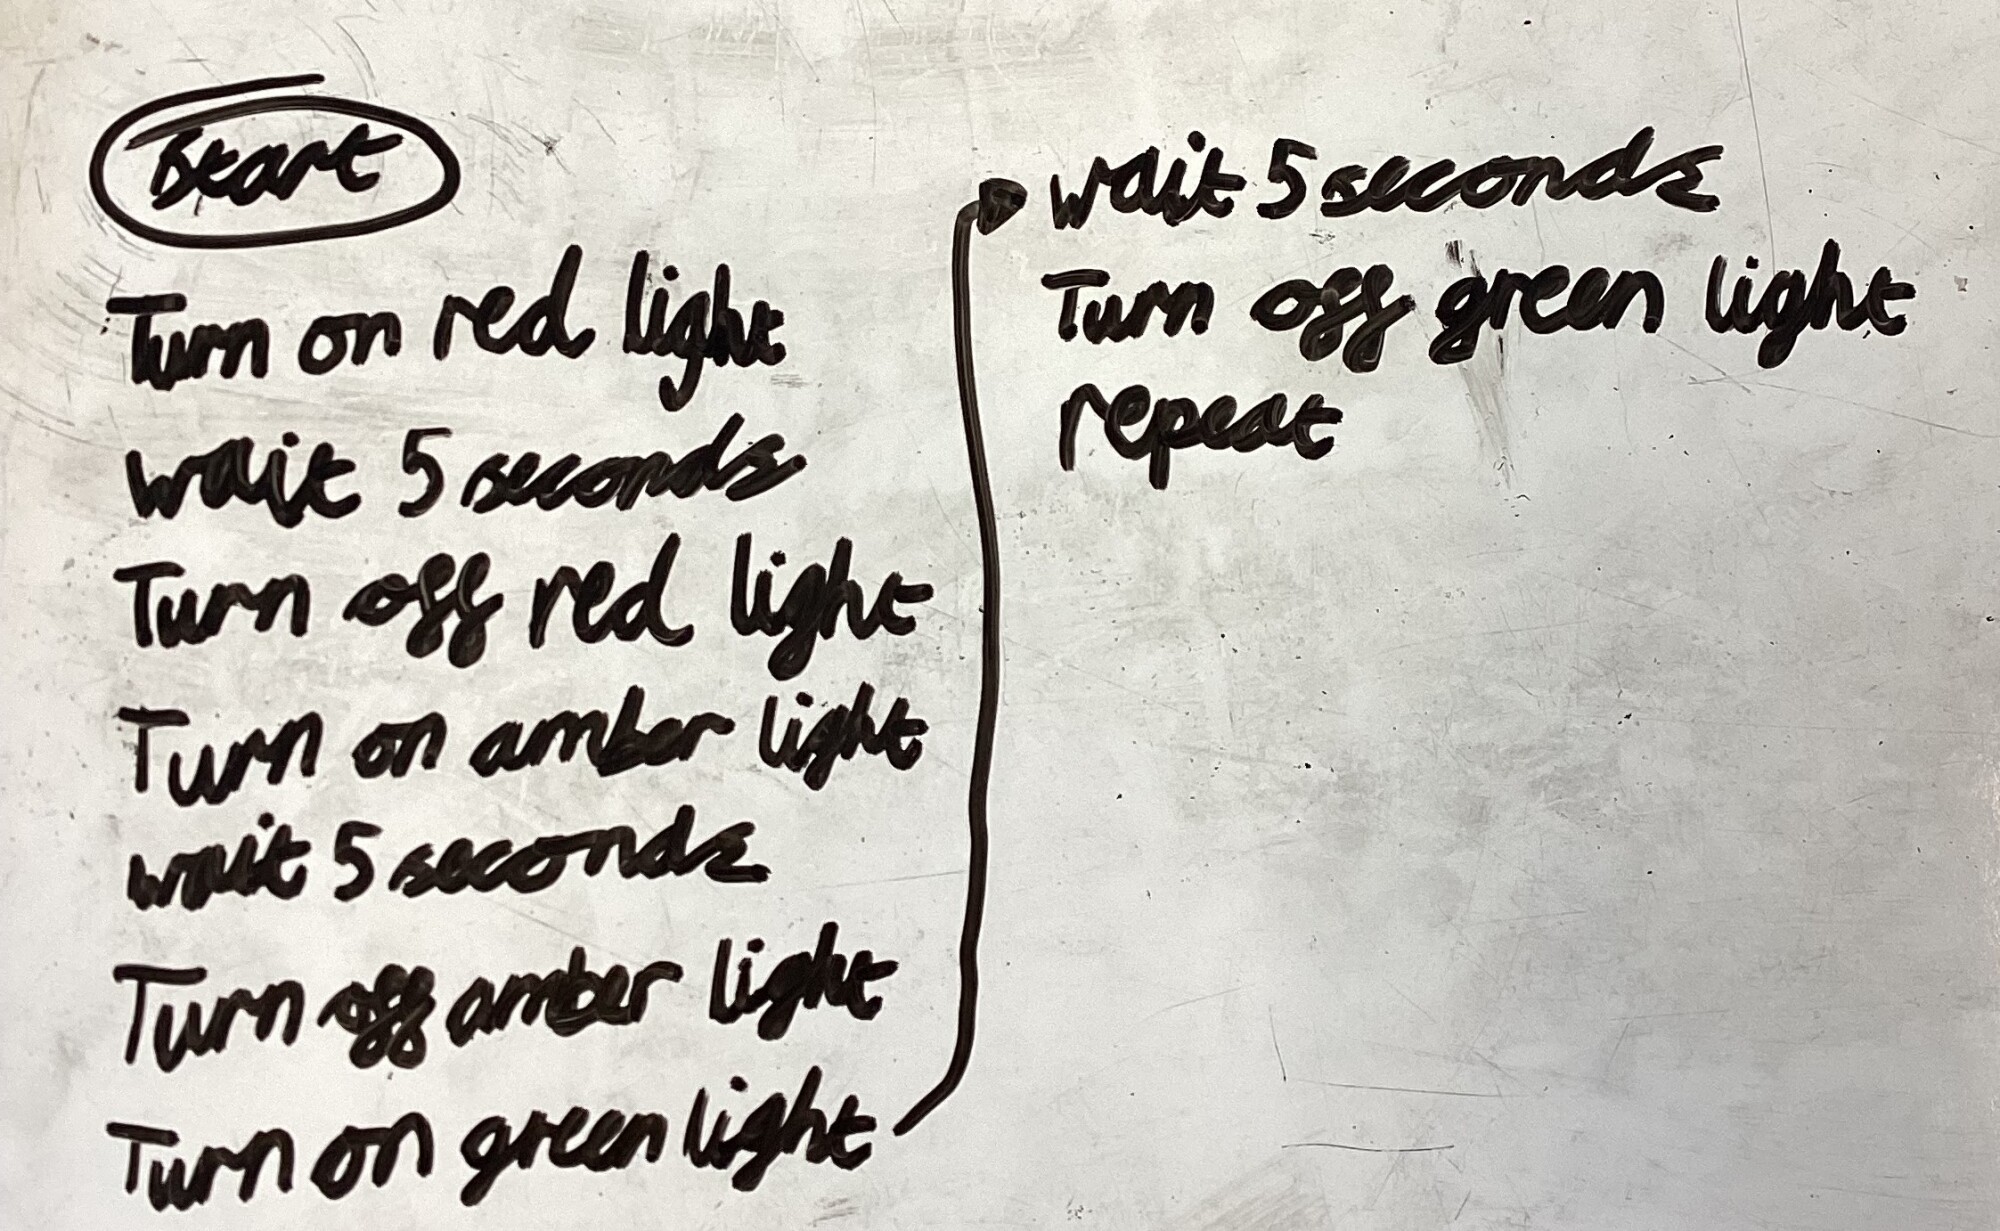 Start
Turn on red light
wait 5 seconds
Turn off red light
Turn on amber light
wait 5 seconds
Turn off amber light
Turn on green light
wait 5 seconds
Turn off green light
repeat